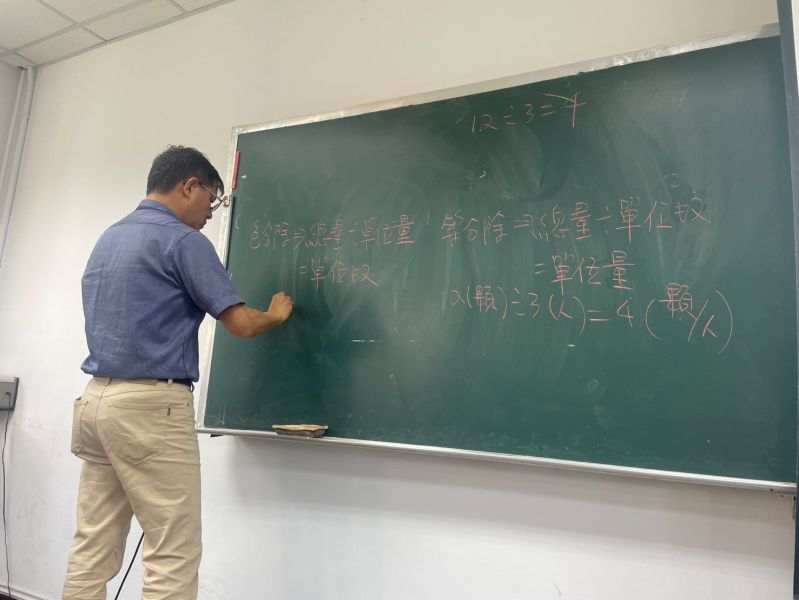 12÷3=4
包含除⇒總量÷單位量
=單位數
等分除⇒總量÷單位數
=單位量
12(顆)÷3(人)=4(顆/人)